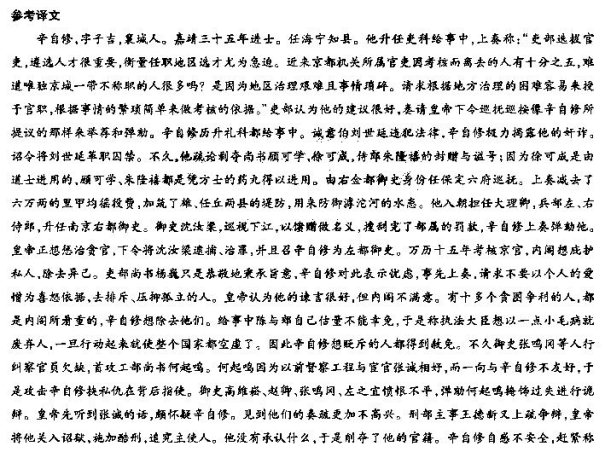 参考译文
辛自修,字子吉,襄城人。嘉靖三十五年进士。任海宁知县。他升任吏科给事中,上奏称:“吏部选拔官
吏,遴选人才很重要,衡量任职地区选才尤为急迫。近来京都机关所属官吏因考核而离去的人有十分之五,难
道唯独京城一带不称职的人很多吗?是因为地区治理艰难且事情琐碎。请求根据地方治理的困难容易来授
于官职,根据事情的繁琐简单来做考核的依据。”吏部认为他的建议很好,奏请皇帝下令巡抚巡按像辛自修所
提议的那样来举荐和弹劾。辛自修历升礼科都给事中。诚意伯刘世延违犯法律,辛自修极力揭露他的奸诈。
诏令将刘世延革职囚禁。不久,他疏论剥夺尚书顾可学、徐可成,侍郎朱隆禧的封赠与谥号;因为徐可成是由
道士进用的,顾可学、朱隆禧都是凭方士的药丸得以进用。由右佥都御史身份任保定六府巡抚。上奏减去了
六万两的里甲均徭役费,加筑了雄、任丘两县的堤防,用来防御滹沱河的水患。他入朝担任大理卿,兵部左、右
侍郎,升任南京右都御史。御史沈汝梁,巡视下江,以馈赠做名义,搜刮完了部属的罚款,辛自修上奏弹劾他。
皇帝正想惩治贪官,下令将沈汝梁逮捕、治罪,并且召辛自修为左都御史。万历十五年考核京官,内阁想庇护
私人,除去异己。吏部尚书杨巍只是恭敬地秉承旨意,辛自修对此表示忧虑,事先上奏,请求不要以个人的爱
憎为喜怒依据,去排斥、压抑孤立的人。皇帝认为他的谏言很好,但内阁不满意。有十多个贪图争利的人,都
是内阁所看重的,辛自修想除去他们。给事中陈与郊自己估量不能幸免,于是称执法大臣想以一点小毛病就
废弃人,一旦行动起来就使整个国家都空虚了。因此辛自修想贬斥的人都得到赦免。不久御史张鸣冈等人行
纠察官员欠缺,首攻工部尚书何起鸣。何起鸣因为以前督察工程与宦官张诚相好,而一向与辛自修不友好,于
是攻击辛自修挟私仇在背后指使。御史高维崧、赵卿、张鸣冈、左之宜愤恨不平,弹劾何起鸣掩饰过失进行诡
辩。皇帝先听到张诚的话,颇怀疑辛自修。见到他们的奏疏更加不高兴。刑部主事王德新又上疏争辩,皇帝
将他关入诏狱,施加酷刑,追究主使人。他没有承认什么,于是削夺了他的官籍。辛自修自感不安全,赶紧称